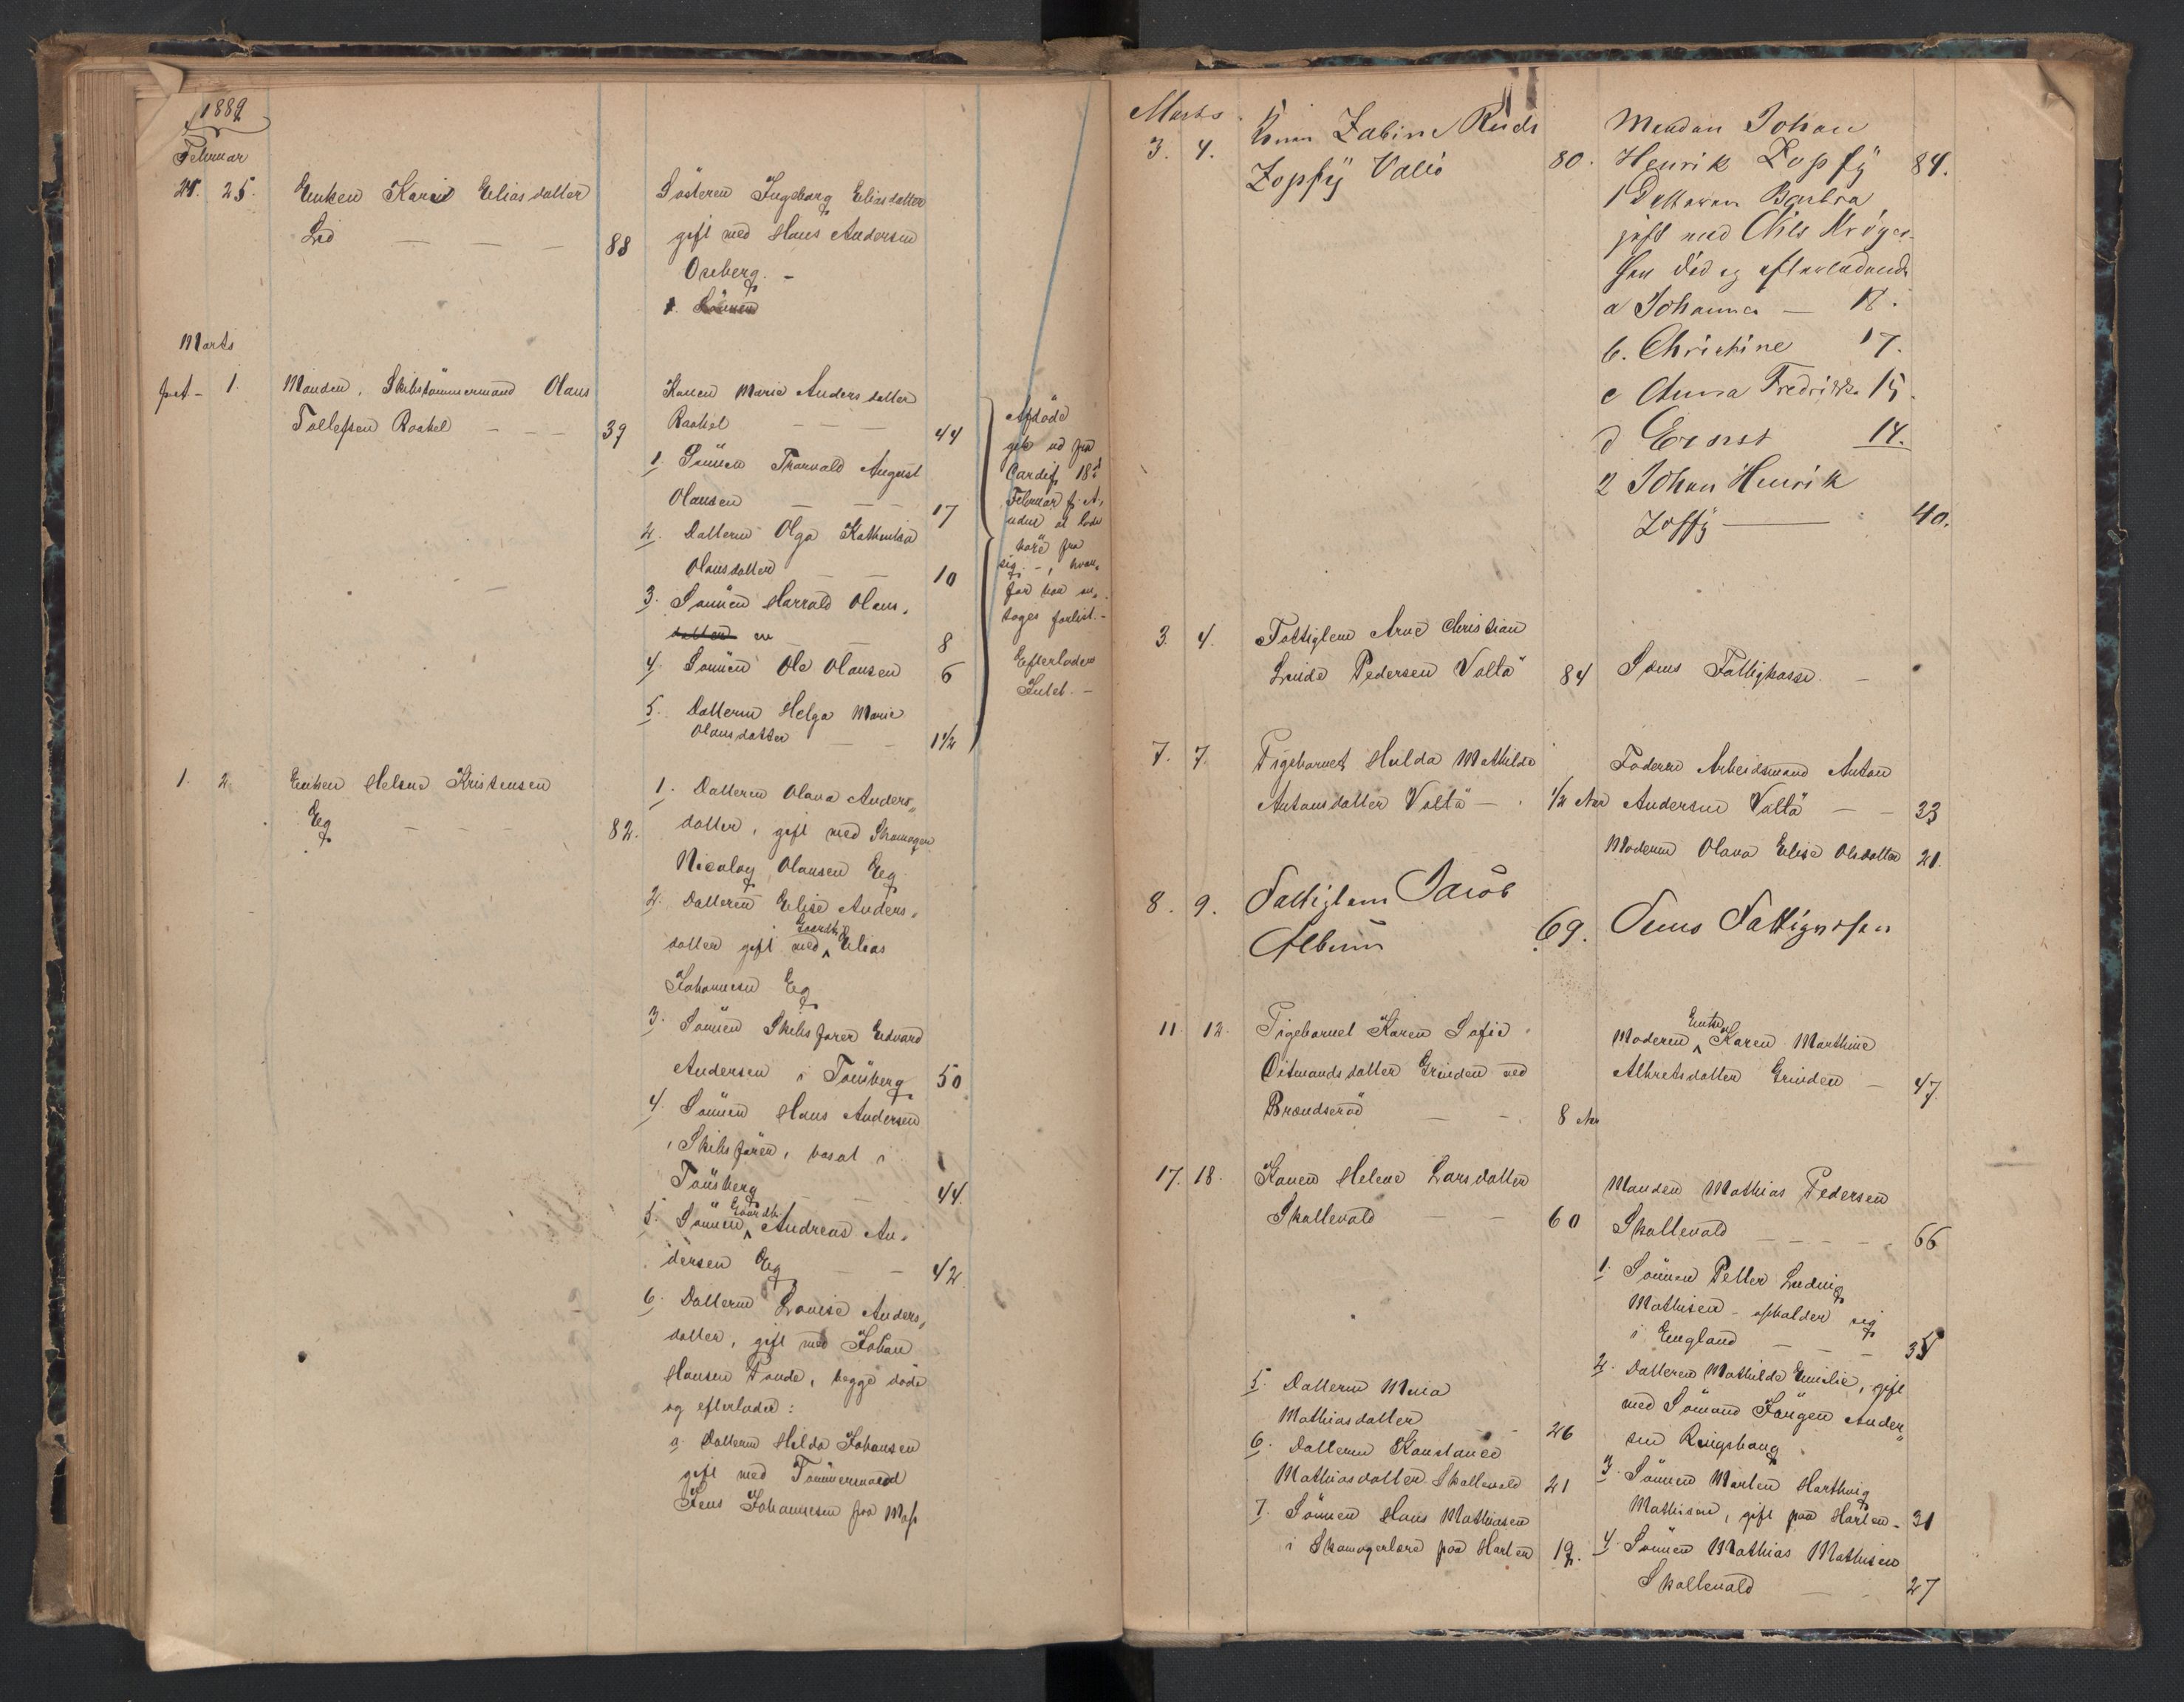 1889
Februar
21. 25. Enken Karie Eliasdatter
Lid — — — 88
Søsteren Ingeborg Eliasdatter
gift med Hans Andersen
Oseberg. -
1. Sønnen
Marts
1. Manden, Skibstømmermand Olaus
Tollefsen Raakel - - - 39
Konen Marie Andersdatter
Raakel - - - 44
1. Sønnen Thorvald August
Olausen — — 17
2. Datteren Olga Kathinka
Olausdatter — — 10
3. Sønnen Harrald Olaus-
datter en — — 8
4. Sønnen Ole Olausen 6
5. Datteren Helga Marie
Olausdatter — - 1 1/2
Afdøde
gik ud fra
Cardif 18de
Februar f. A.
uden at lade
høre fra
sig -, hvor-
for han an-
tages forlist. -
Efterlader
Intet. -
1. 2. Enken Helene Kristensen
Eg — - - - 82.
1. Datteren Olava Anders-
datter, gift med Skomager
Nicolay Olausen Eg
2. Datteren Elise Anders-
datter gift med Gaardbr. Elias
Johannesen Eg
3. Sønnen Skibsfører Edvard
Andersen i Tønsberg 50
4. Sønnen Hans Andersen
, Skibsfører, bosat i
Tønsberg — — 44.
5. Sønnen Gaardbr. Andreas An-
dersen Eg — — 42.
6. Datteren Lovise Anders-
datter, gift med Johan
Hansen Rande, begge døde
og efterlader:
a. Datteren Hilda Johansen
gift med Tømmermand
Jens Johannesen paa
Marts
3. 4. Konen Zabine Ruds
Zopfy Vallö 80.
Manden Johan
Henrik Zopfy 84.
1 Datteren Barbra
gift med Nils Krøger-
Han død og efterladende
a Johanna — 18.
b. Christine 17.
c Anna Fredrikke 15.
d Ernst 14.
2 Johan Henrik
Zoffy — 40.
3. 4. Fattiglem Arne Christian
Linde Pedersen Valtö 84
Sems Fattigkasse. —
7. 7. Pigebarnet Hulda Mathilde
Antonsdatter Valtö — 1/2 Aar
Faderen Arbeidsmand Anton
Andersen Valtö — - 33
Moderen Olava Elise Olsdatter 21.
8. 9. Fattiglem Jacob
Album 69.
Sems Fattigvæsen
11. 12. Pigebarnet Karen Sofie
Oitmandsdatter Grinden ved
Brændserød — - 8 Aar
Moderen Enke Karen Marthine
Albretsdatter Grinden — 47.
17. 18. Konen Helene Larsdatter
Skallevald — — 60
Manden Mathias Pedersen
Skallevald - - - - - 66
1. Sønnen Petter Ludvig
Mathisen - opholder sig
i England — — - 35
2. Datteren Mathilde Emilie, gift
med Sømand Jørgen Ander-
sen Ringshaug
3. Sønnen Marten Harthvig
Mathisen, gift paa Horten - 31
4. Sønnen Mathias Mathisen
Skallevald — - 27
5. Datteren Maria
Mathiasdatter - - 26
6. Datteren Konstance
Mathiasdatter Skallevald 21
7. Sønnen Hans Mathiasen
i Skomagerlære paa Horten 19.